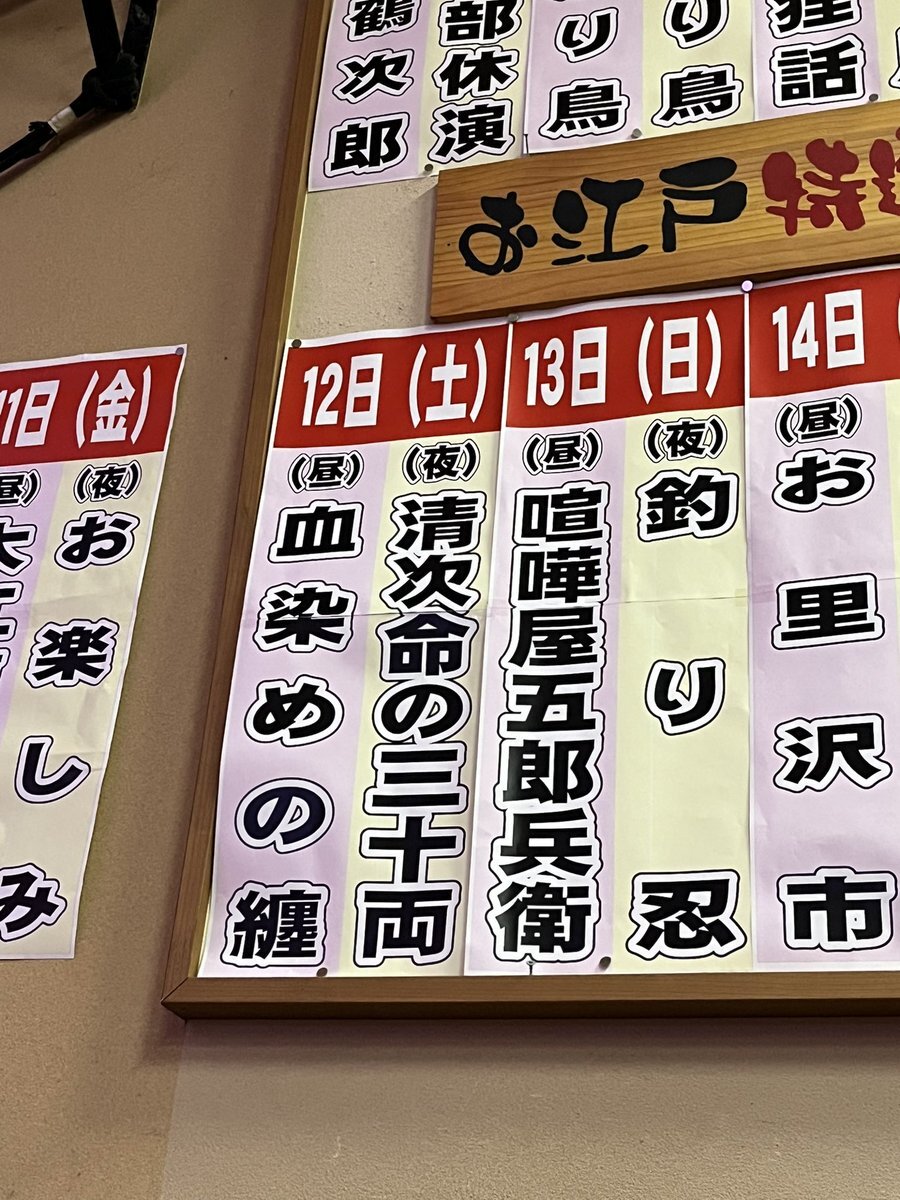 鶴次郎
部休演
り鳥
り鳥
狸話
お江戸 特
1日(金)
(昼)
(夜)
お楽しみ
12日(土)
(昼)
血染めの纏
(夜)
清次命の三十両
13日(日)
(昼)
喧嘩屋五郎兵衛
(夜)
釣り忍
14日
(昼)
お里沢市